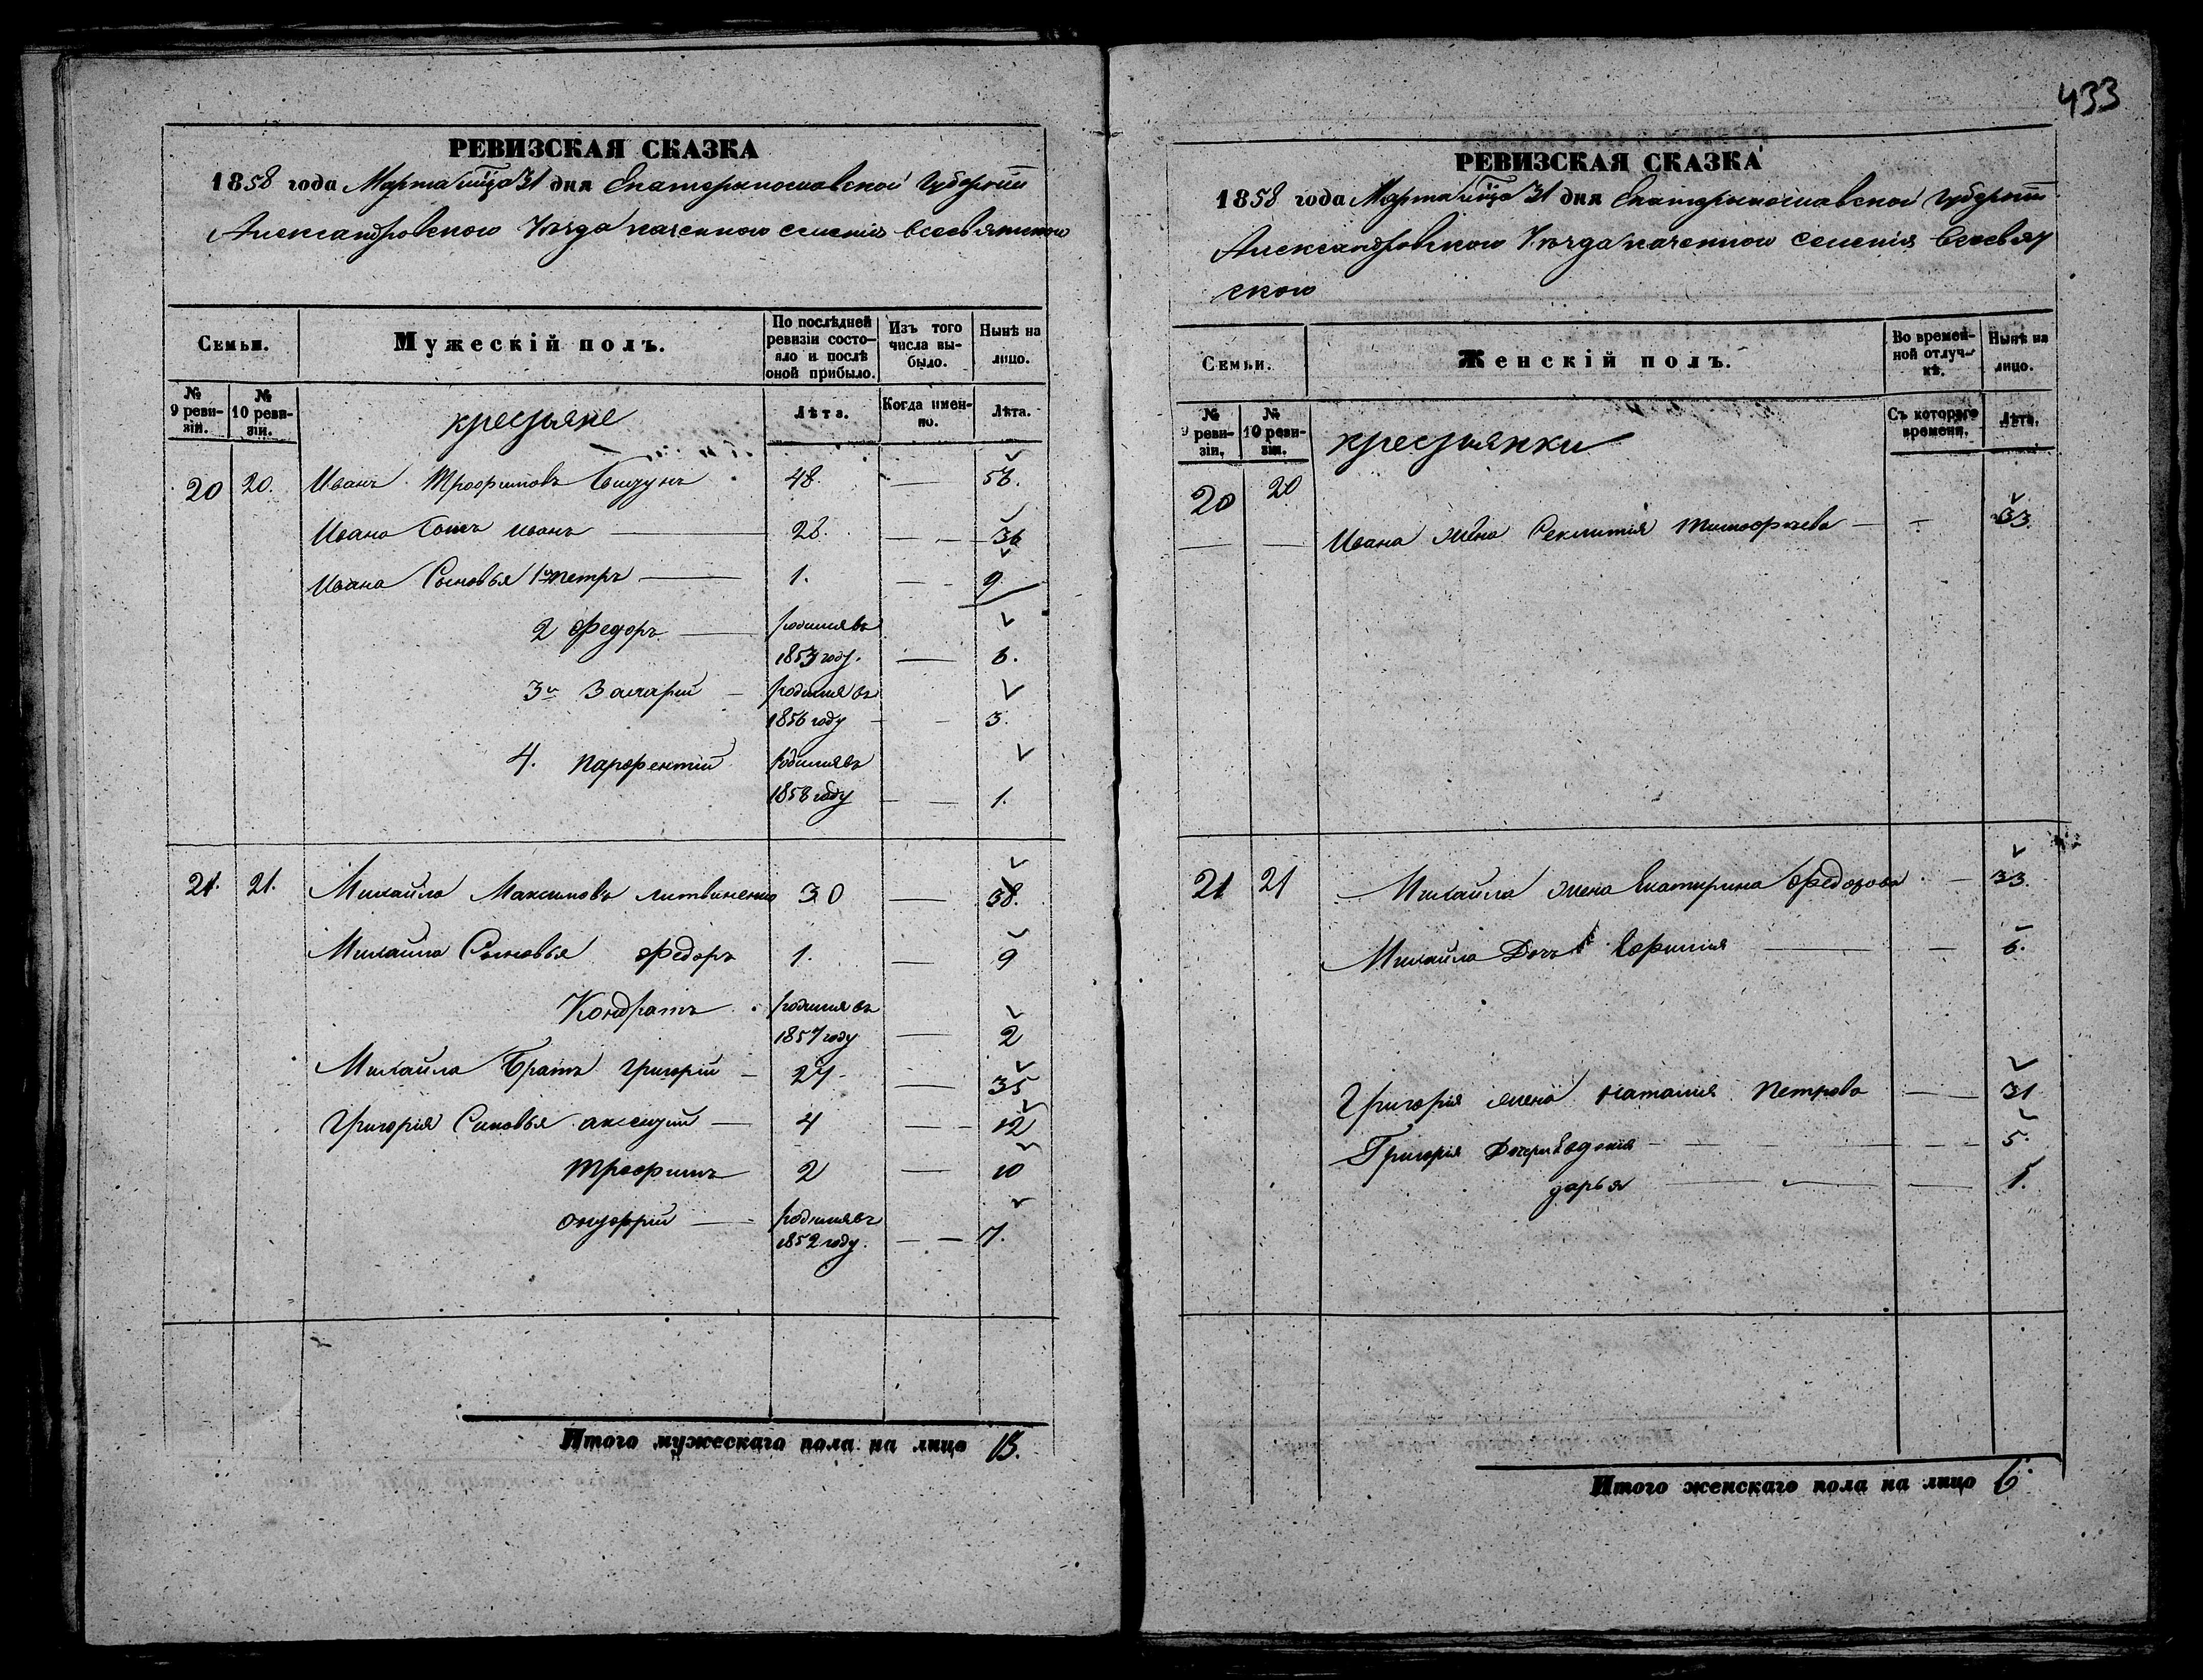 433
РЕВИЗСКАЯ СКАЗКА
1858 года Марта мца 31 дня Екатеринославской Губернии
Александровского Уезда казенного селения Всесвятского
Семьи. Мужескій полъ. По послѣдней ревизіи состояло и послѣ оной прибыло. Изъ того числа выбыло. Нынѣ на лицо.
№ 9 ревизіи. № 10 ревизіи. крестьяне Лѣта. Когда именно. Лѣта.
20 20. Иванъ Трофимовъ 48. — 56.
Ивана Сынъ Иванъ — 28. — — 36
Ивана Сыновья 1й Петръ — 1. — — 9
2 Федоръ — родился въ
1853 году. — 6.
3й Захарій — родился въ
1856 году — — 3.
4. Парфентій родился въ
1858 году — — 1.
21. 21. Михайло Максимовъ Литвиненко 30 — 38.
Михайла Сыновья Федоръ 1. — 9
Кондратъ родился въ
1857 году — 2
Михайла Братъ Григорій — 27 — 35
Григорія Синовья Алексѣй — 4 — — 12
Трофимъ 2 — 10
Онуфрій — родился въ
1852 году. — — 7.
Итого мужескаго пола на лицо 13.
РЕВИЗСКАЯ СКАЗКА
1858 года Марта мца 31 дня Екатеринославской Губернии
Александровского Уезда казенного селения Всесвят
ского
Семьи. Женскій полъ. Во временной отлучкѣ. Нынѣ на лицо.
№ 9 ревизіи. № 10 ревизіи. крестьянки Съ котораго времени. Лѣта.
20 20
— — Ивана жена Тимофѣева — — 33.
21 21 Михайла жена Екатирина Федорова — 33.
Михайла Дочь Ефимия — — 6.
Григорія жена Наталия Петрова — — 31
Григорія Дочери Евдокія — — — — 5.
дарья — — — — 1.
Итого женскаго пола на лицо 6.